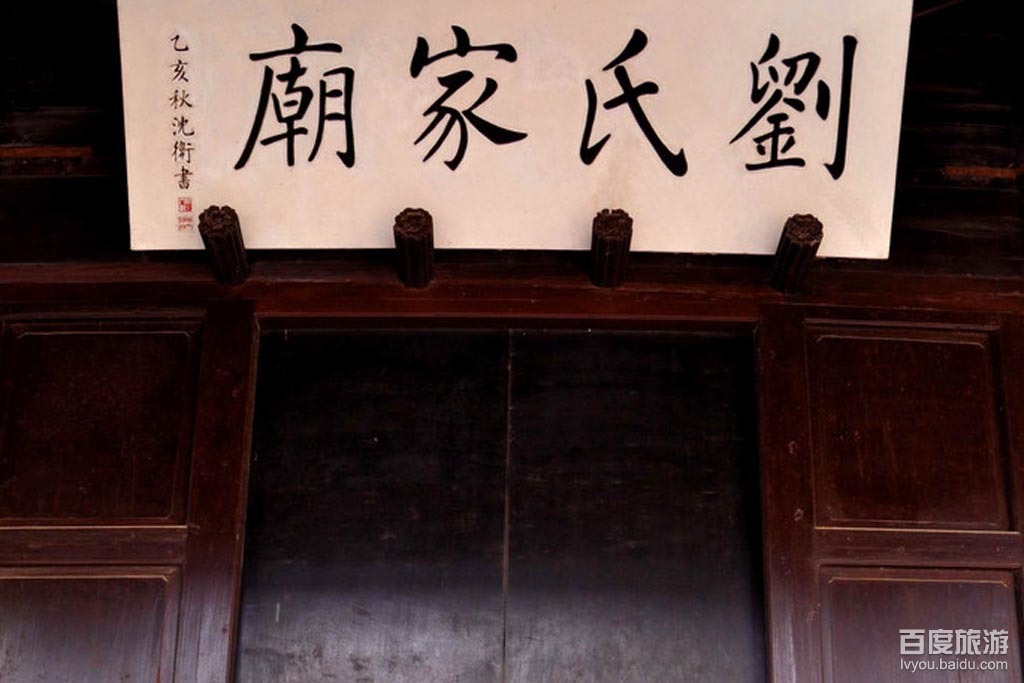 劉氏家廟
乙亥秋沈衛書
百度旅游
lvyou.baidu.com